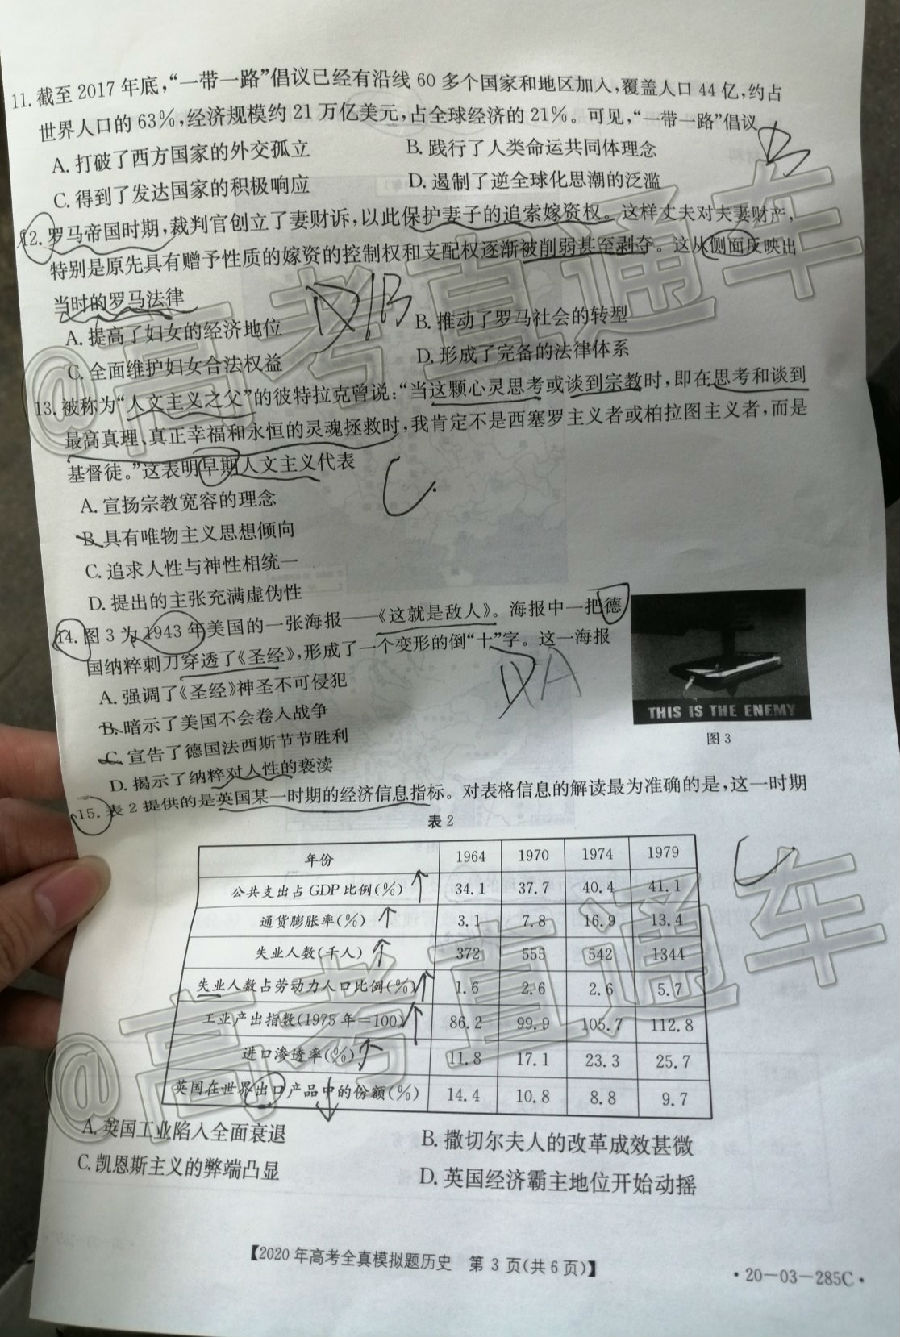 11. 截至 2017 年底,“一带一路”倡议已经有沿线 60 多个国家和地区加入,覆盖人口 44 亿,约占
世界人口的 63%,经济规模约 21 万亿美元,占全球经济的 21%。可见,“一带一路”倡议
A. 打破了西方国家的外交孤立
B. 践行了人类命运共同体理念
C. 得到了发达国家的积极响应
D. 遏制了逆全球化思潮的泛滥
B
12. 罗马帝国时期,裁判官创立了妻财诉,以此保护妻子的追索嫁资权。这样丈夫对夫妻财产,
特别是原先具有赠予性质的嫁资的控制权和支配权逐渐被削弱甚至剥夺。这从侧面反映出
当时的罗马法律
A. 提高了妇女的经济地位
B. 推动了罗马社会的转型
C. 全面维护妇女合法权益
D. 形成了完备的法律体系
13. 被称为“人文主义之父”的彼特拉克曾说:“当这颗心灵思考或谈到宗教时,即在思考和谈到
最高真理、真正幸福和永恒的灵魂拯救时,我肯定不是西塞罗主义者或柏拉图主义者,而是
基督徒。”这表明早期人文主义代表
A. 宣扬宗教宽容的理念
B. 具有唯物主义思想倾向
C. 追求人性与神性相统一
D. 提出的主张充满虚伪性
C
14. 图 3 为 1943 年美国的一张海报——《这就是敌人》。海报中一把德
国纳粹刺刀穿透了《圣经》,形成了一个变形的倒“十”字。这一海报
A. 强调了《圣经》神圣不可侵犯
B. 暗示了美国不会卷入战争
C. 宣告了德国法西斯节节胜利
D. 揭示了纳粹对人性的亵渎
DA
THIS IS THE ENEMY
图 3
15. 表 2 提供的是英国某一时期的经济信息指标。对表格信息的解读最为准确的是,这一时期
C
表 2
年份 1964 1970 1974 1979
公共支出占 GDP 比例(%) 34.1 37.7 40.4 41.1
通货膨胀率(%) 3.1 7.8 16.9 13.4
失业人数(千人) 372 555 542 1344
失业人数占劳动力人口比例(%) 1.6 2.6 2.6 5.7
工业产出指数(1975 年=100) 86.2 99.9 105.7 112.8
进口渗透率(%) 11.8 17.1 23.3 25.7
英国在世界出口产品中的份额(%) 14.4 10.8 8.8 9.7
A. 英国工业陷入全面衰退
B. 撒切尔夫人的改革成效甚微
C. 凯恩斯主义的弊端凸显
D. 英国经济霸主地位开始动摇
【2020 年高考全真模拟题历史 第 3 页(共 6 页)】
·20-03-285C·
@高考直通车
@高考直通车